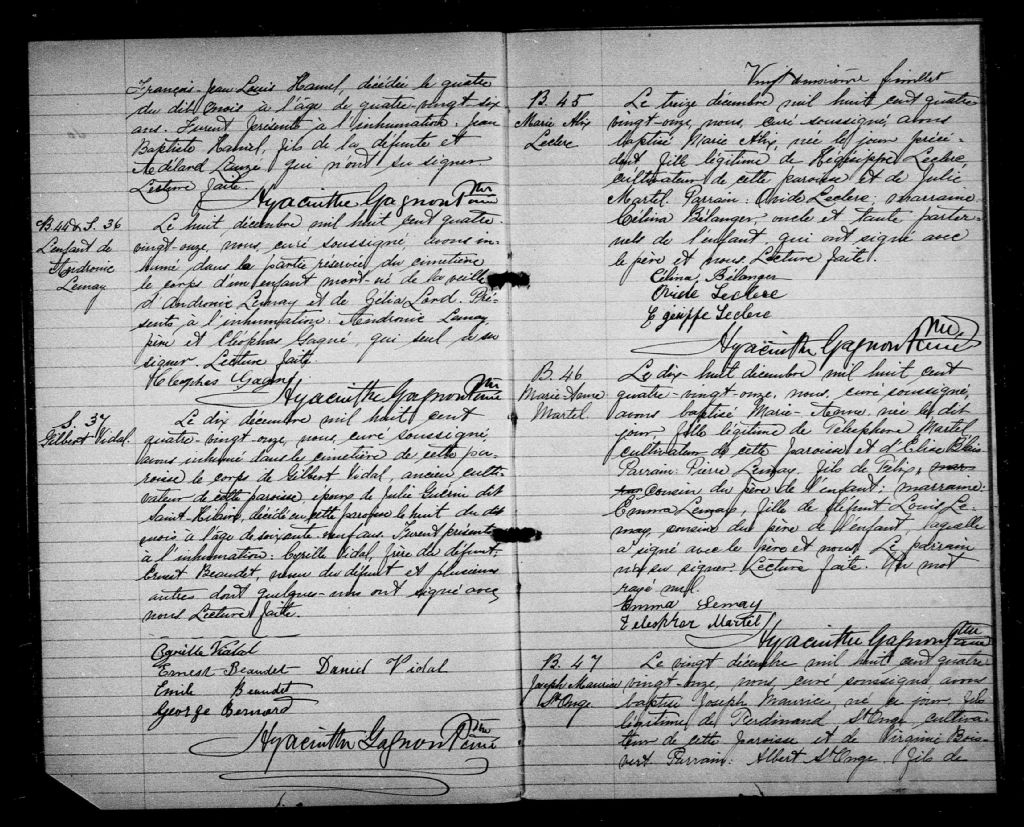 François-Jean Louis Hamel, décédée le quatre
du dit mois à l'âge de quatre-vingt-six
ans. Furent présents à l'inhumation: Jean
Baptiste Hamel, fils de la défunte et
Adélard Lauzé qui n'ont su signer.
Lecture faite.
Hyacinthe Gagnon Ptre
curé
B. 44 & S. 36
L'enfant de
Andronic
Lemay
Le huit décembre mil huit cent quatre
vingt-onze, nous, curé soussigné, avons in-
humé dans la partie réservée du cimetière
le corps d'un enfant mort-né de la veille
d'Andronic Lemay et de Zelia Lord. Pré-
sents à l'inhumation: Andronic Lemay,
père et Cléophas Gagné, qui seul a su
signer. Lecture faite.
Kleophas Gagné
Hyacinthe Gagnon Ptre
curé
S. 37
Gilbert Vidal.
Le dix décembre mil huit cent
quatre-vingt-onze, nous, curé soussigné,
avons inhumé dans le cimetière de cette pa-
roisse le corps de Gilbert Vidal, ancien culti-
vateur de cette paroisse époux de Julie Guérin dit
Saint Hilaire, décédé en cette paroisse le huit du dit
mois à l'âge de soixante-neuf ans. Furent présents
à l'inhumation: Cyrille Vidal, frère du défunt,
Ernest Beaudet, neveu du défunt et plusieurs
autres dont quelques-uns ont signé avec
nous. Lecture faite.
Cyrille Vidal
Ernest Beaudet Daniel Vidal
Emile Beaudet
George Bernard
Hyacinthe Gagnon Ptre
curé
Vingt feuillet
B. 45
Marie Alix
Leclerc
Le treize décembre mil huit cent quatre
vingt-onze, nous, curé soussigné, avons
baptisé Marie Alix, née le jour précé-
dent fille légitime de Leclerc,
cultivateur de cette paroisse et de Julie
Martel. Parrain: Ovide Leclerc; marraine
Célina Bélanger, oncle et tante pater-
nels de l'enfant, qui ont signé avec
le père et nous. Lecture faite.
Célina Bélanger
Ovide Leclerc
Leclerc
Hyacinthe Gagnon Ptre
curé
B. 46
Marie-Anne
Martel
Le dix-huit décembre mil huit cent
quatre-vingt-onze, nous, curé soussigné,
avons baptisé Marie-Anne, née le dit
jour fille légitime de Télesphore Martel
cultivateur de cette paroisse et d'Elise
Parrain: Pierre Lemay, fils de
cousin du père de l'enfant; marraine:
Emma Lemay, fille de défunt Louis Le-
may, cousine du père de l'enfant laquelle
a signé avec le père et nous. Le parrain
n'a su signer. Lecture faite. Un mot
rayé nul.
Emma Lemay
Telesphor Martel
Hyacinthe Gagnon Ptre
curé
B. 47
Joseph Maurice
St Onge
Le vingt décembre mil huit cent quatre
vingt-onze, nous, curé soussigné avons
baptisé Joseph Maurice, né ce jour, fils
légitime de Ferdinand St Onge cultiva-
teur de cette paroisse et de Virginie Bois-
vert Parrain: Albert St Onge fils de